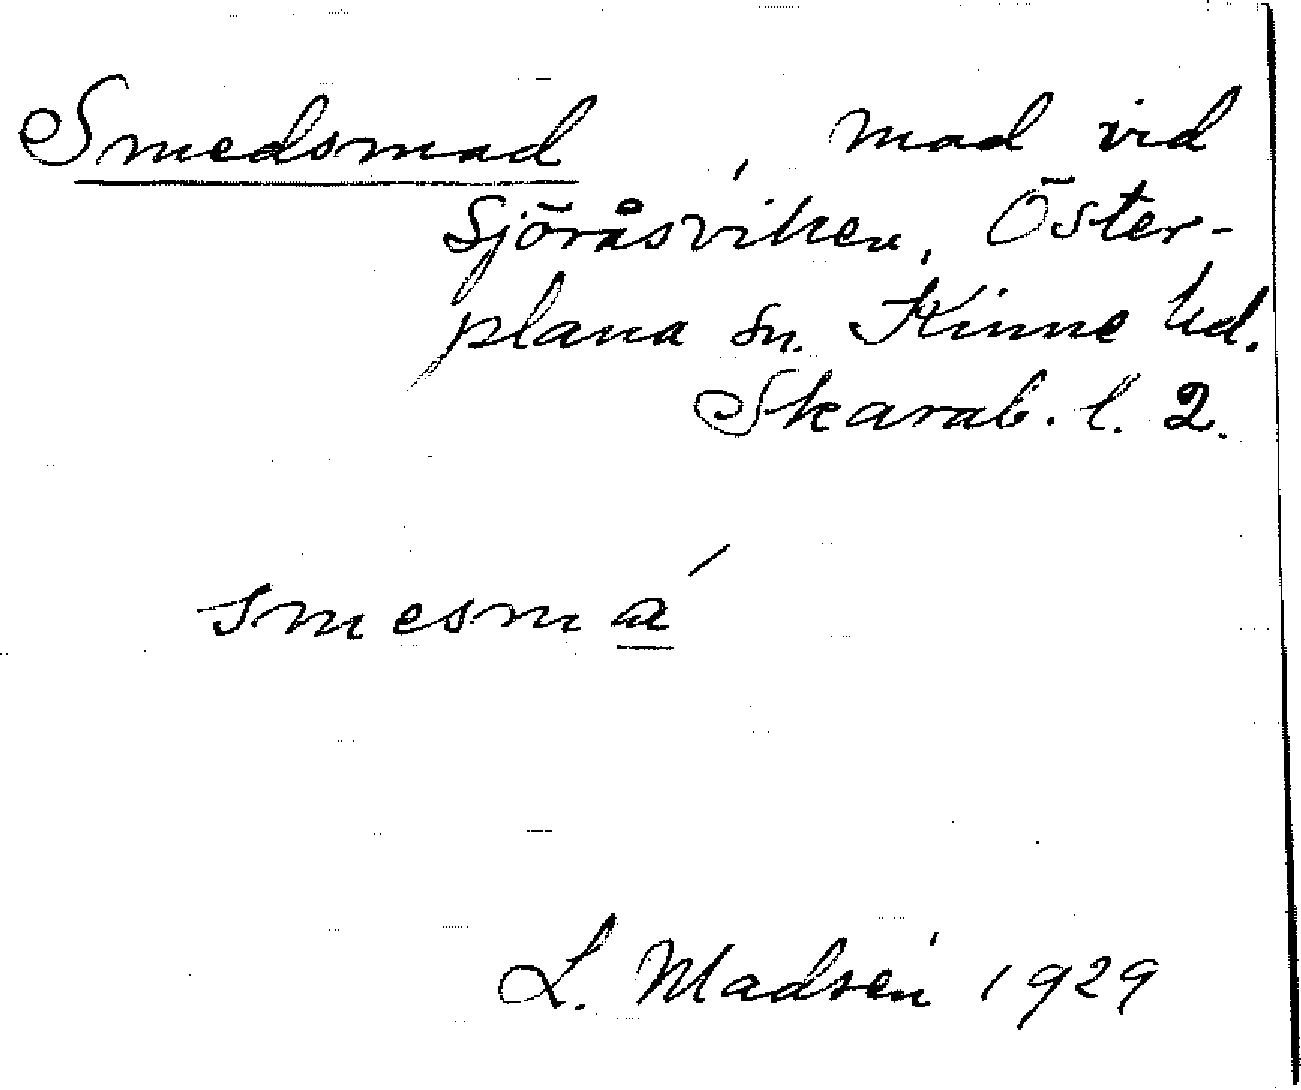 Smedsmad, mad vid
Sjöråsviken, Öster-
plana sn. Kinne hd.
Skarab. l. 2.
smesma ́
L. Madsén 1929